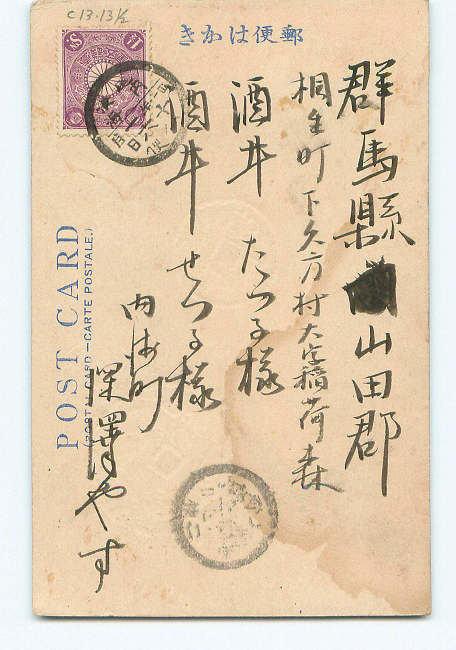 C13.13½
きかは便郵
群馬縣山田郡
相生町下久方村大字稲荷森
酒井たつ子様
酒井せつ子様
内
町
深澤やす
POST CARD
(POST CARD—CARTE POSTALE.)